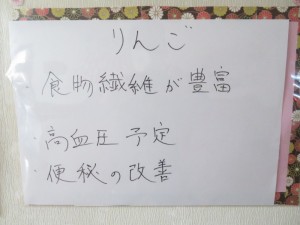 りんご
食物繊維が豊富
・高血圧予定
・便秘の改善